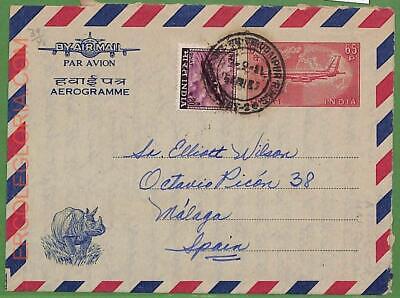 BY AIR MAIL
PAR AVION
हवाई पत्र
AEROGRAMME
भारत INDIA
65
P
INDIA
Sr. Elliott Wilson
Octavio Picón 38
Málaga
Spain